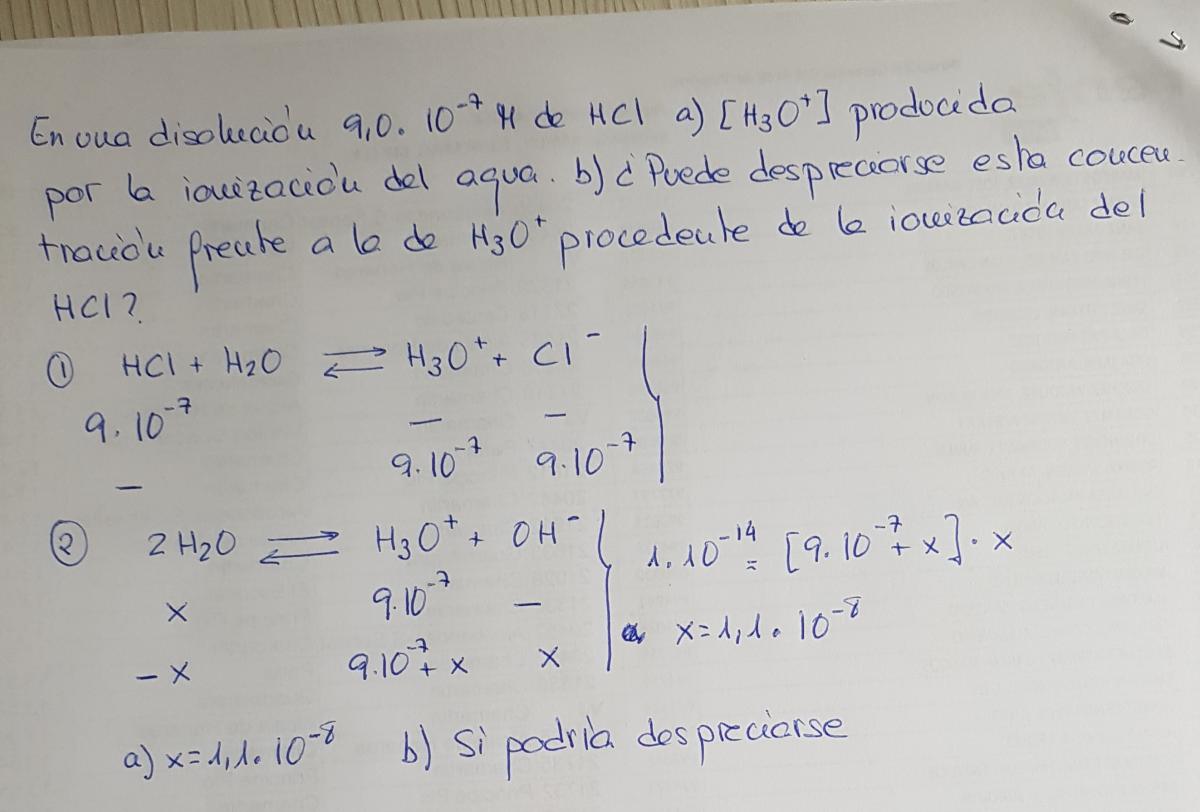 En una disolución 9,0. 10⁻⁷ M de HCl a) [H₃O⁺] producida
por la ionización del agua. b) ¿Puede despreciarse esta concen-
tración frente a la de H₃O⁺ procedente de la ionización del
HCl?
① HCl + H₂O ⇌ H₃O⁺ + Cl⁻
9. 10⁻⁷ — —
— 9.10⁻⁷ 9.10⁻⁷
② 2 H₂O ⇌ H₃O⁺ + OH⁻ 1.10⁻¹⁴ = [9.10⁻⁷ + x] · x
x 9.10⁻⁷ — x = 1,1. 10⁻⁸
– x 9.10⁻⁷ + x x
a) x = 1,1. 10⁻⁸ b) Si podría despreciarse